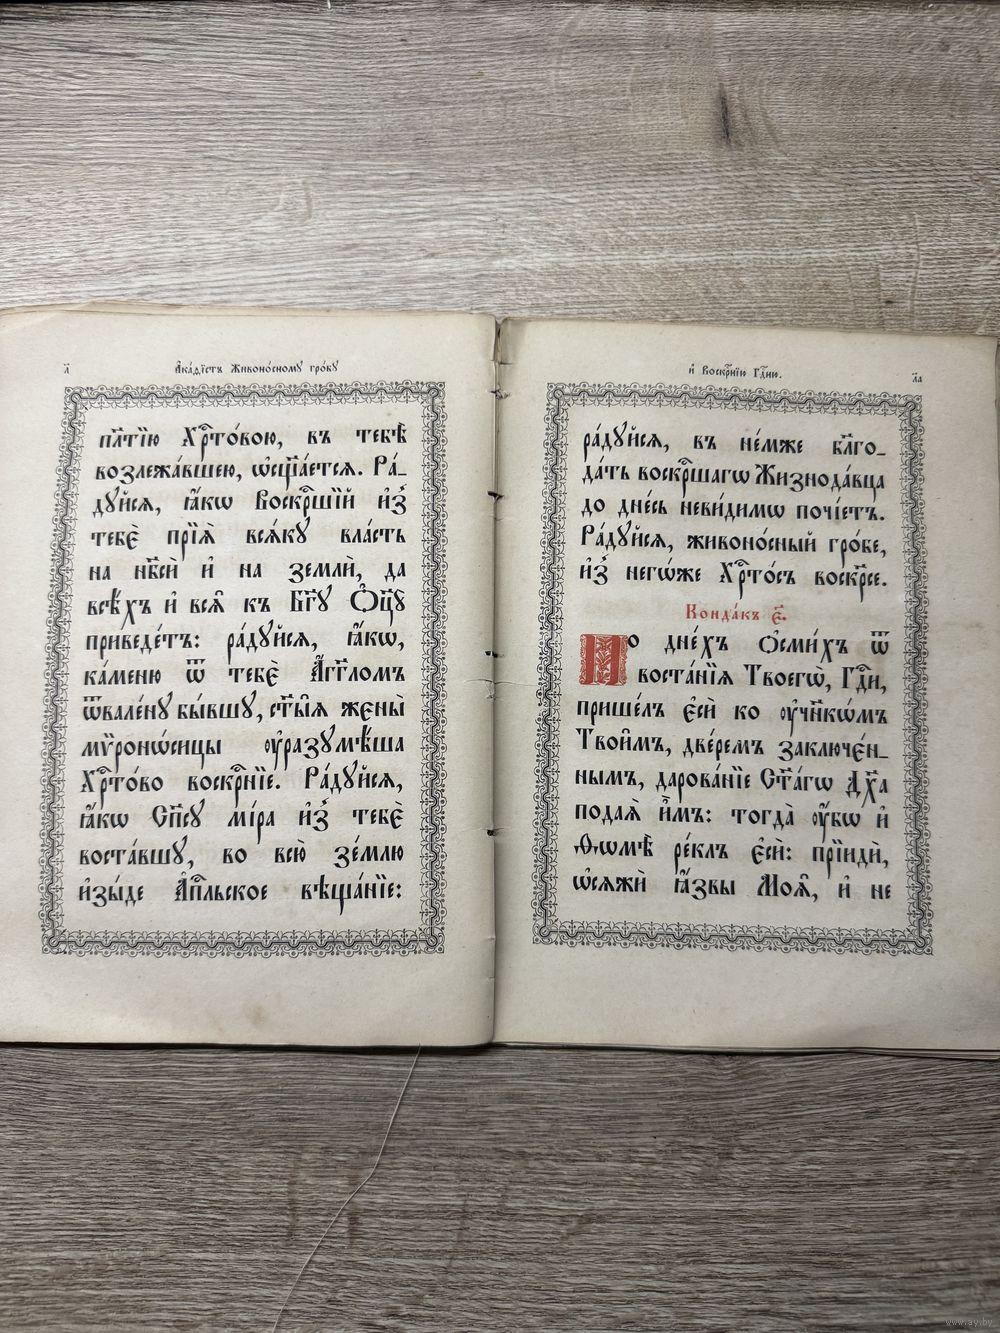 л҃
А҆ка́ѳїстъ Живоно́сному гро́бу
пл҃тїю Хрⷭ҇то́вою, въ тебѣ̀
возлежа́вшею, ѡ҆сщ҃а́етсѧ. Ра́_
дꙋйсѧ, ꙗ҆́кѡ Воскрⷭ҇шїй и҆з̾
тебє̀ прїѧ̀ всѧ́кꙋ вла́сть
на нб҃сѝ и҆ на землѝ, да
всѣ́хъ и҆ всѧ̑ къ Бг҃ꙋ Ѻ҆ц҃ꙋ̀
приведе́тъ: ра́дꙋйсѧ, ꙗ҆́кѡ,
ка́меню ѿ тебє̀ А҆́гг҃ломъ
ѿвале́нꙋ бы́вшꙋ, ст҃ы̑ѧ жєны̀
мѷронѡ́сицы ᲂу҆разꙋмѣ́ша
Хрⷭ҇то́во воскрⷭ҇нїе. Ра́дꙋйсѧ,
ꙗ҆́кѡ Сп҃сꙋ мі́ра и҆з̾ тебє̀
воста́вшꙋ, во всю̀ зе́млю
и҆зы́де А҆пⷭ҇льское вѣща́нїе:
и҆ Воскрⷭ҇нїю Гдⷭ҇ню.
л҃а
ра́дꙋйсѧ, въ не́мже бл҃го_
да́ть воскрⷭ҇шагѡ Жизнода́вца
до дне́сь неви́димѡ почі́етъ.
Ра́дꙋйсѧ, живоно́сный гро́бе,
и҆з̾ негѡ́же Хрⷭ҇то́съ воскр҃се.
Конда́къ є҃.
По дне́хъ ѻ҆сми́хъ ѿ
воста́нїѧ Твоегѡ̀, Гдⷭ҇и,
прише́лъ є҆сѝ ко ᲂу҆чн҃кѡ́мъ
Твои̑мъ, две́ремъ заключє́н_
нымъ, дарова́нїе Ст҃а́гѡ Дх҃а
подаѧ̀ и҆̀мъ: тогда̀ ᲂу҆́бѡ и҆
Ѳѡмѣ̀ ре́клъ є҆сѝ: прїидѝ,
ѡ҆сѧжѝ ꙗ҆́звы Моѧ̑, и҆ не
www.ay.by